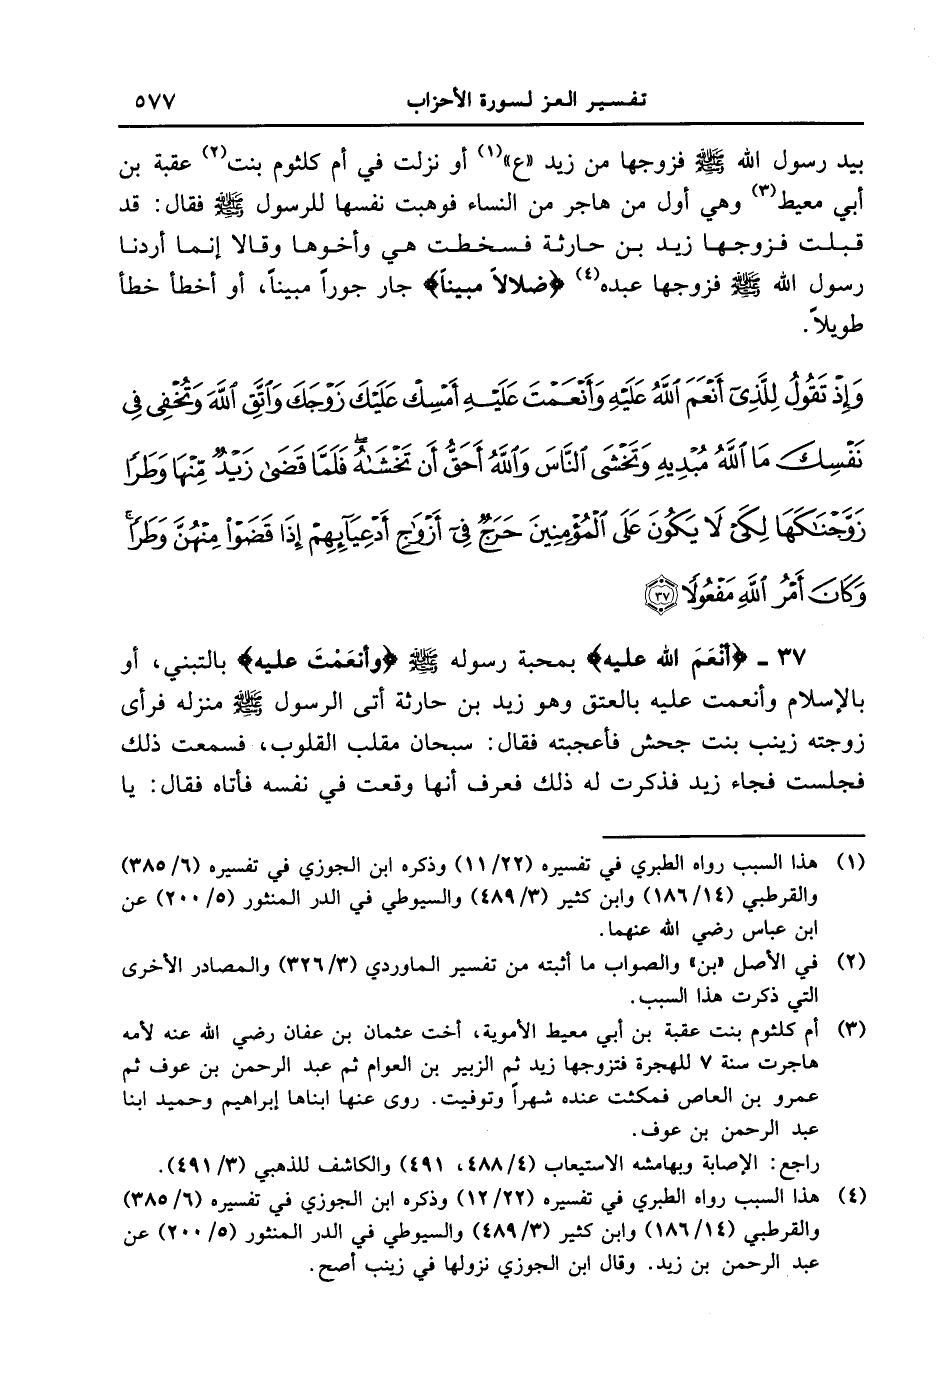 تفسير العز لسورة الأحزاب ٥٧٧
بيد رسول الله ﷺ فزوجها من زيد «ع»(١) أو نزلت في أم كلثوم بنت(٢) عقبة بن
أبي معيط(٣) وهي أول من هاجر من النساء فوهبت نفسها للرسول ﷺ فقال: قد
قبلت فزوجها زيد بن حارثة فسخطت هي وأخوها وقالا إنما أردنا
رسول الله ﷺ فزوجها عبده(٤) ﴿ضلالاً مبيناً﴾ جار جوراً مبيناً، أو أخطأ خطأ
طويلاً.
وَإِذْ تَقُولُ لِلَّذِىٓ أَنْعَمَ ٱللَّهُ عَلَيْهِ وَأَنْعَمْتَ عَلَيْهِ أَمْسِكْ عَلَيْكَ زَوْجَكَ وَٱتَّقِ ٱللَّهَ وَتُخْفِى فِى
نَفْسِكَ مَا ٱللَّهُ مُبْدِيهِ وَتَخْشَى ٱلنَّاسَ وَٱللَّهُ أَحَقُّ أَن تَخْشَىٰهُ ۖ فَلَمَّا قَضَىٰ زَيْدٌ مِّنْهَا وَطَرًا
زَوَّجْنَٰكَهَا لِكَىْ لَا يَكُونَ عَلَى ٱلْمُؤْمِنِينَ حَرَجٌ فِىٓ أَزْوَٰجِ أَدْعِيَآئِهِمْ إِذَا قَضَوْا۟ مِنْهُنَّ وَطَرًا ۚ
وَكَانَ أَمْرُ ٱللَّهِ مَفْعُولًا ﴿٣٧﴾
٣٧ ـ ﴿أَنْعَمَ الله عليه﴾ بمحبة رسوله ﷺ ﴿وأنعَمْتَ عليه﴾ بالتبني، أو
بالإسلام وأنعمت عليه بالعتق وهو زيد بن حارثة أتى الرسول ﷺ منزله فرأى
زوجته زينب بنت جحش فأعجبته فقال: سبحان مقلب القلوب، فسمعت ذلك
فجلست فجاء زيد فذكرت له ذلك فعرف أنها وقعت في نفسه فأتاه فقال: يا
(١) هذا السبب رواه الطبري في تفسيره (١١/٢٢) وذكره ابن الجوزي في تفسيره (٣٨٥/٦)
والقرطبي (١٨٦/١٤) وابن كثير (٤٨٩/٣) والسيوطي في الدر المنثور (٢٠٠/٥) عن
ابن عباس رضي الله عنهما.
(٢) في الأصل «بن» والصواب ما أثبته من تفسير الماوردي (٣٢٦/٣) والمصادر الأخرى
التي ذكرت هذا السبب.
(٣) أم كلثوم بنت عقبة بن أبي معيط الأموية، أخت عثمان بن عفان رضي الله عنه لأمه
هاجرت سنة ٧ للهجرة فتزوجها زيد ثم الزبير بن العوام ثم عبد الرحمن بن عوف ثم
عمرو بن العاص فمكثت عنده شهراً وتوفيت. روى عنها ابناها إبراهيم وحميد ابنا
عبد الرحمن بن عوف.
راجع: الإصابة وبهامشه الاستيعاب (٤٨٨/٤، ٤٩١) والكاشف للذهبي (٤٩١/٣).
(٤) هذا السبب رواه الطبري في تفسيره (١٢/٢٢) وذكره ابن الجوزي في تفسيره (٣٨٥/٦)
والقرطبي (١٨٦/١٤) وابن كثير (٤٨٩/٣) والسيوطي في الدر المنثور (٢٠٠/٥) عن
عبد الرحمن بن زيد. وقال ابن الجوزي نزولها في زينب أصح.